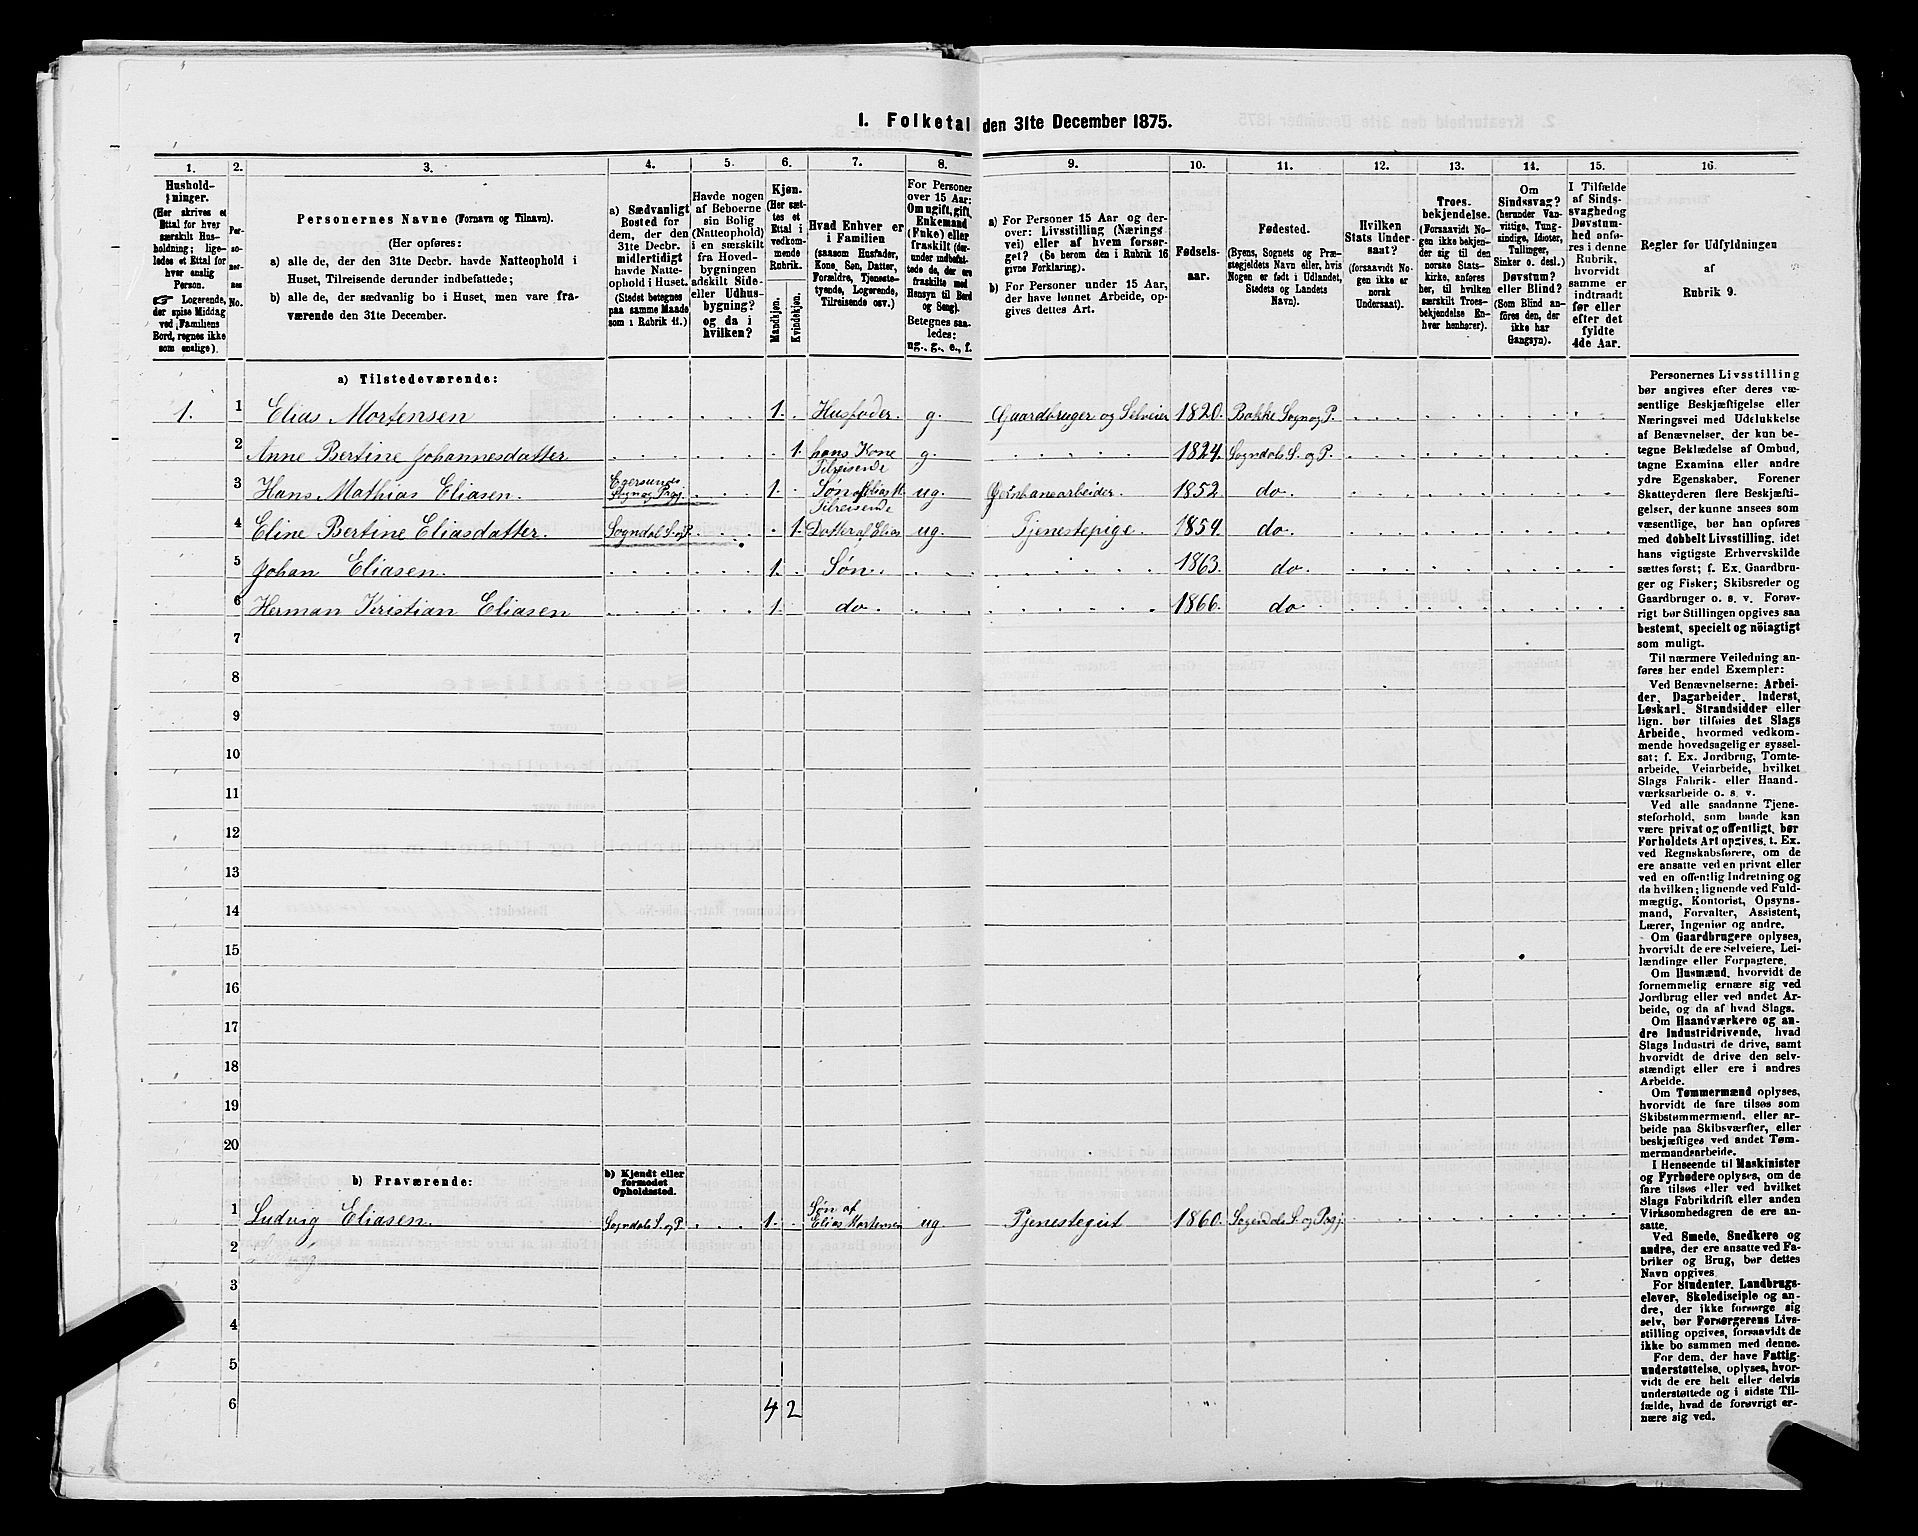 1. Folketal den 31te December 1875.
1. 2. 3. 4. 5. 6. 7. 8. 9. 10. 11. 12. 13. 14. 15. 16.
Hushold-
ninger.
(Her skrives et
Ettal for hver
særskilt Hus-
holdning; lige-
ledes et Ettal for
hver enslig
Person.
☞ Logerende,
der spise Middag
ved Familiens
Bord, regnes ikke
som enslige).
Per-
so-
ner-
nes
No.
Personernes Navne (Fornavn og Tilnavn).
(Her opføres:
a) alle de, der den 31te Decbr. havde Natteophold i
Huset, Tilreisende derunder indbefattede;
b) alle de, der sædvanlig bo i Huset, men vare fra-
værende den 31te December.
a) Sædvanligt
Bosted for
dem, der den
31te Decbr.
midlertidigt
havde Natte-
ophold i Huset.
(Stedet betegnes
paa samme Maade
som i Rubrik 11.)
Havde nogen
af Beboerne
sin Bolig
(Natteophold)
i en særskilt
fra Hoved-
bygningen
adskilt Side-
eller Udhus-
bygning?
og da i
hvilken?
Kjøn.
(Her sæt-
tes et
Ettal i
vedkom-
mende
Rubrik.
Mandkjøn.
Kvindekjøn.
Hvad Enhver er
i Familien
(saasom Husfader,
Kone, Søn, Datter,
Forældre, Tjeneste-
tyende, Logerende,
Tilreisende osv.)
For Personer
over 15 Aar:
Om ugift, gift,
Enkemand
(Enke) eller
fraskilt (der-
under indbefat-
tede de, der ere
fraskilte med
Hensyn til Bord
og Seng).
Betegnes saa-
ledes:
ug., g., e., f.
a) For Personer 15 Aar og der-
over: Livsstilling (Nærings-
vei) eller af hvem forsør-
get? (Se herom den i Rubrik 16
givne Forklaring).
b) For Personer under 15 Aar,
der have lønnet Arbeide, op-
gives dettes Art.
Fødsels-
aar.
Fødested.
(Byens, Sognets og Præ-
stegjeldets Navn eller, hvis
Nogen er født i Udlandet,
Stedets og Landets
Navn).
Hvilken
Stats Under-
saat?
(forsaavidt No-
gen ikke er
norsk
Undersaat).
Troes-
bekjendelse.
(Forsaavidt No-
gen ikke bekjen-
der sig til den
norske Stats-
kirke, anføres
her, til hvilken
særskilt Troes-
bekjendelse En-
hver henhører).
Om
Sindssvag?
(herunder Van-
vittige, Tung-
sindige, Idioter,
Tullinger,
Sinker o. desl.)
Døvstum?
eller Blind?
(Som Blind an-
føres den, der
ikke har
Gangsyn).
I Tilfælde
af Sinds-
svaghed og
Døvstum-
hed anfø-
res i denne
Rubrik,
hvorvidt
samme er
indtraadt
før eller
efter det
fyldte
4de Aar.
Regler for Udfyldningen
af
Rubrik 9.
a) Tilstedeværende:
1. 1 Elias Mortensen 1. Husfader. g. Gaardbruger og Selveier 1820. Bakke Sogn og P.
2 Anne Bertine Johannesdatter 1. hans Kone g. 1824. Sogndals S. og P.
3 Hans Mathias Eliasen. Egersunds Sogn og Prgj. 1. Tilreisende Søn af Elias M. ug. 1852. do.
4 Eline Bertine Eliasdatter. Sogndal S. og P. 1. Tilreisende Datter af Elias ug. Tjenestepige. 1854. do.
5 Johan Eliasen. 1. Søn. 1863. do
6 Herman Kristian Eliasen 1. do. 1866. do
7
8
9
10
11
12
13
14
15
16
17
18
19
20
b) Fraværende:
b) Kjendt eller
formodet
Opholdssted.
1 Ludvig Eliasen. Sogndals S. og P. 1. Søn af Elias Mortensen ug Tjenestegut 1860. Sogndals S. og Prgj.
2
3
4
5
6 4 2
Personernes Livsstilling
bør angives efter deres væ-
sentlige Beskjæftigelse eller
Næringsvei med Udelukkelse
af Benævnelser, der kun be-
tegne Beklædelse af Ombud,
tagne Examina eller andre
ydre Egenskaber. Forener
Skatteyderen flere Beskjæfti-
gelser, der kunne ansees som
væsentlige, bør han opføres
med dobbelt Livsstilling, idet
hans vigtigste Erhvervskilde
sættes først; f. Ex. Gaardbru-
ger og Fisker; Skibsreder og
Gaardbruger o. s. v. Forøv-
rigt bør Stillingen opgives saa
bestemt, specielt og nöiagtigt
som muligt.
Til nærmere Veiledning an-
føres her endel Exempler:
Ved Benævnelserne: Arbei-
der, Dagarbeider, Inderst,
Løskarl, Strandsidder eller
lign. bør tilføies det Slags
Arbeide, hvormed vedkom-
mende hovedsagelig er syssel-
sat; f. Ex. Jordbrug, Tomte-
arbeide, Veiarbeide, hvilket
Slags Fabrik- eller Haand-
værksarbeide o. s. v.
Ved alle saadanne Tjene-
steforhold, som baade kan
være privat og offentligt, bør
Forholdets Art opgives, t. Ex.
ved Regnskabsførere, om de
ere ansatte ved en privat eller
ved en offentlig Indretning og
da hvilken; lignende ved Fuld-
mægtig, Kontorist, Opsyns-
mand, Forvalter, Assistent,
Lærer, Ingeniør og andre.
Om Gaardbrugere oplyses,
hvorvidt de ere Selveiere, Lei-
lændinge eller Forpagtere.
Om Husmænd, hvorvidt de
fornemmelig ernære sig ved
Jordbrug eller ved andet Ar-
beide, og da af hvad Slags.
Om Haandværkere og an-
dre Industridrivende, hvad
Slags Industri de drive, samt
hvorvidt de drive den selv-
stændigt eller ere i andres
Arbeide.
Om Tømmermænd oplyses,
hvorvidt de fare tilsøs som
Skibstømmermænd, eller ar-
beide paa Skibsværfter, eller
beskjæftiges ved andet Tøm-
mermandsarbeide.
I Henseende til Maskinister
og Fyrbødere oplyses, om de
fare tilsøs eller ved hvilket
Slags Fabrikdrift eller anden
Virksomhedsgren de ere an-
satte.
Ved Smede, Snedkere og
andre, der ere ansatte ved Fa-
briker og Brug, bør dettes
Navn opgives.
For Studenter, Landbrugs-
elever, Skoledisciple og an-
dre, der ikke forsørge sig
selv, bør Forsørgerens Livs-
stilling opgives, forsaavidt de
ikke bo sammen med denne.
For dem, der have Fattig-
understøttelse, oplyses, hvor-
vidt de ere helt eller delvis
understøttede og i sidste Til-
fælde, hvad de forøvrigt er-
nære sig ved.